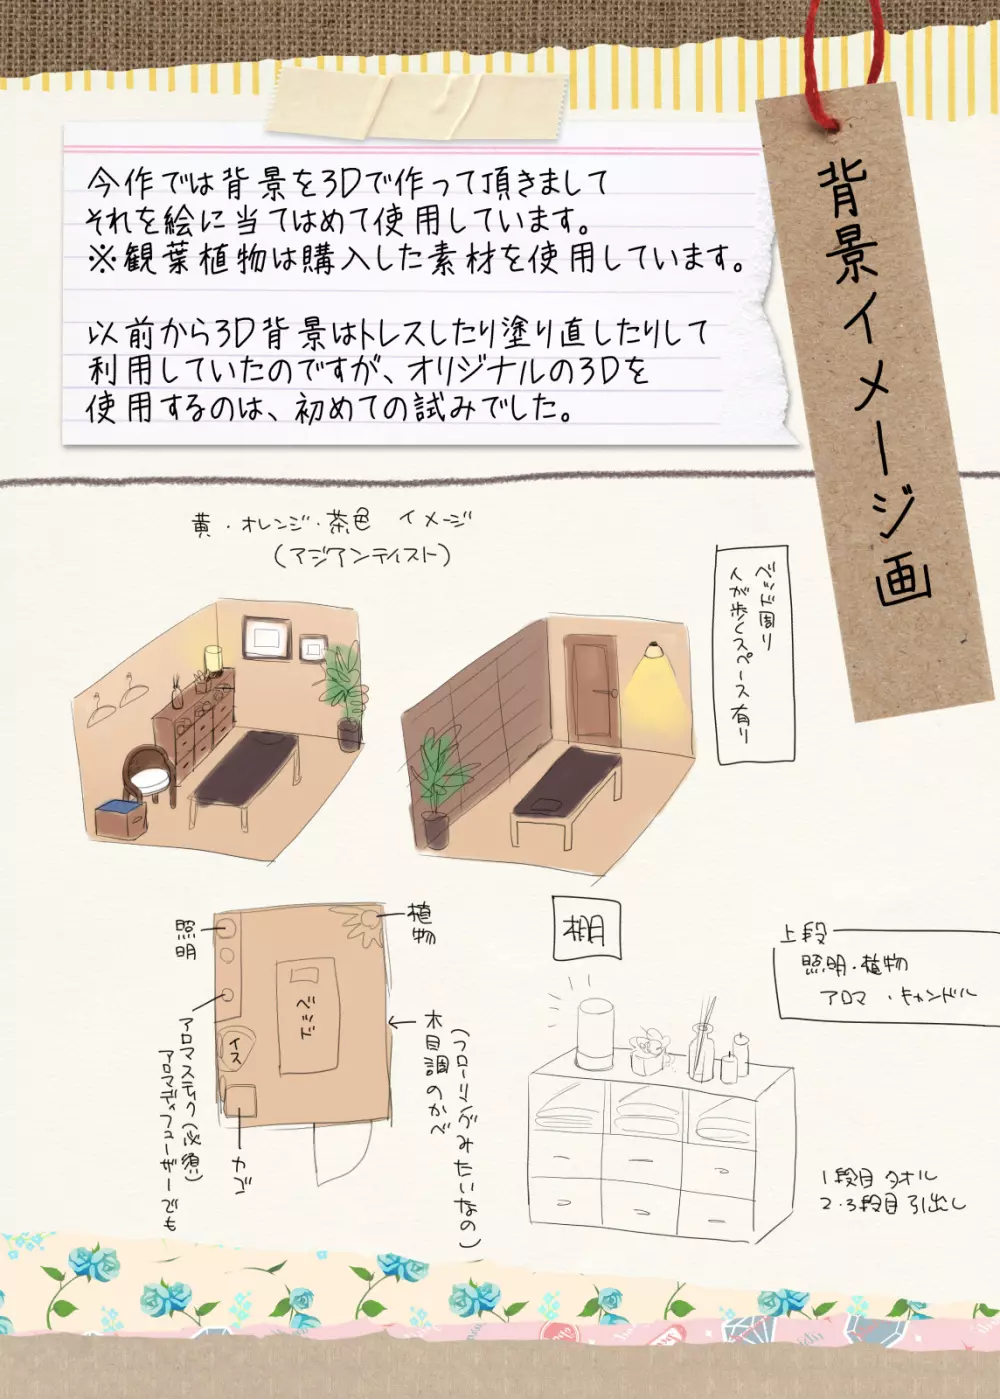 背景イメージ画
今作では背景を3Dで作って頂きまして
それを絵に当てはめて使用しています。
※観葉植物は購入した素材を使用しています。
以前から3D背景はトレスしたり塗り直したりして
利用していたのですが、オリジナルの3Dを
使用するのは、初めての試みでした。
黄・オレンジ・茶色 イメージ
(アジアンテイスト)
ベッド周り
人が歩くスペース有り
照明
植物
ベッド
イス
アロマスティック(必須)
アロマディフューザーでも
カゴ
木目調のかべ
(フローリングみたいなの)
棚
上段
照明・植物
アロマ・キャンドル
1段目 タオル
2・3段目 引出し